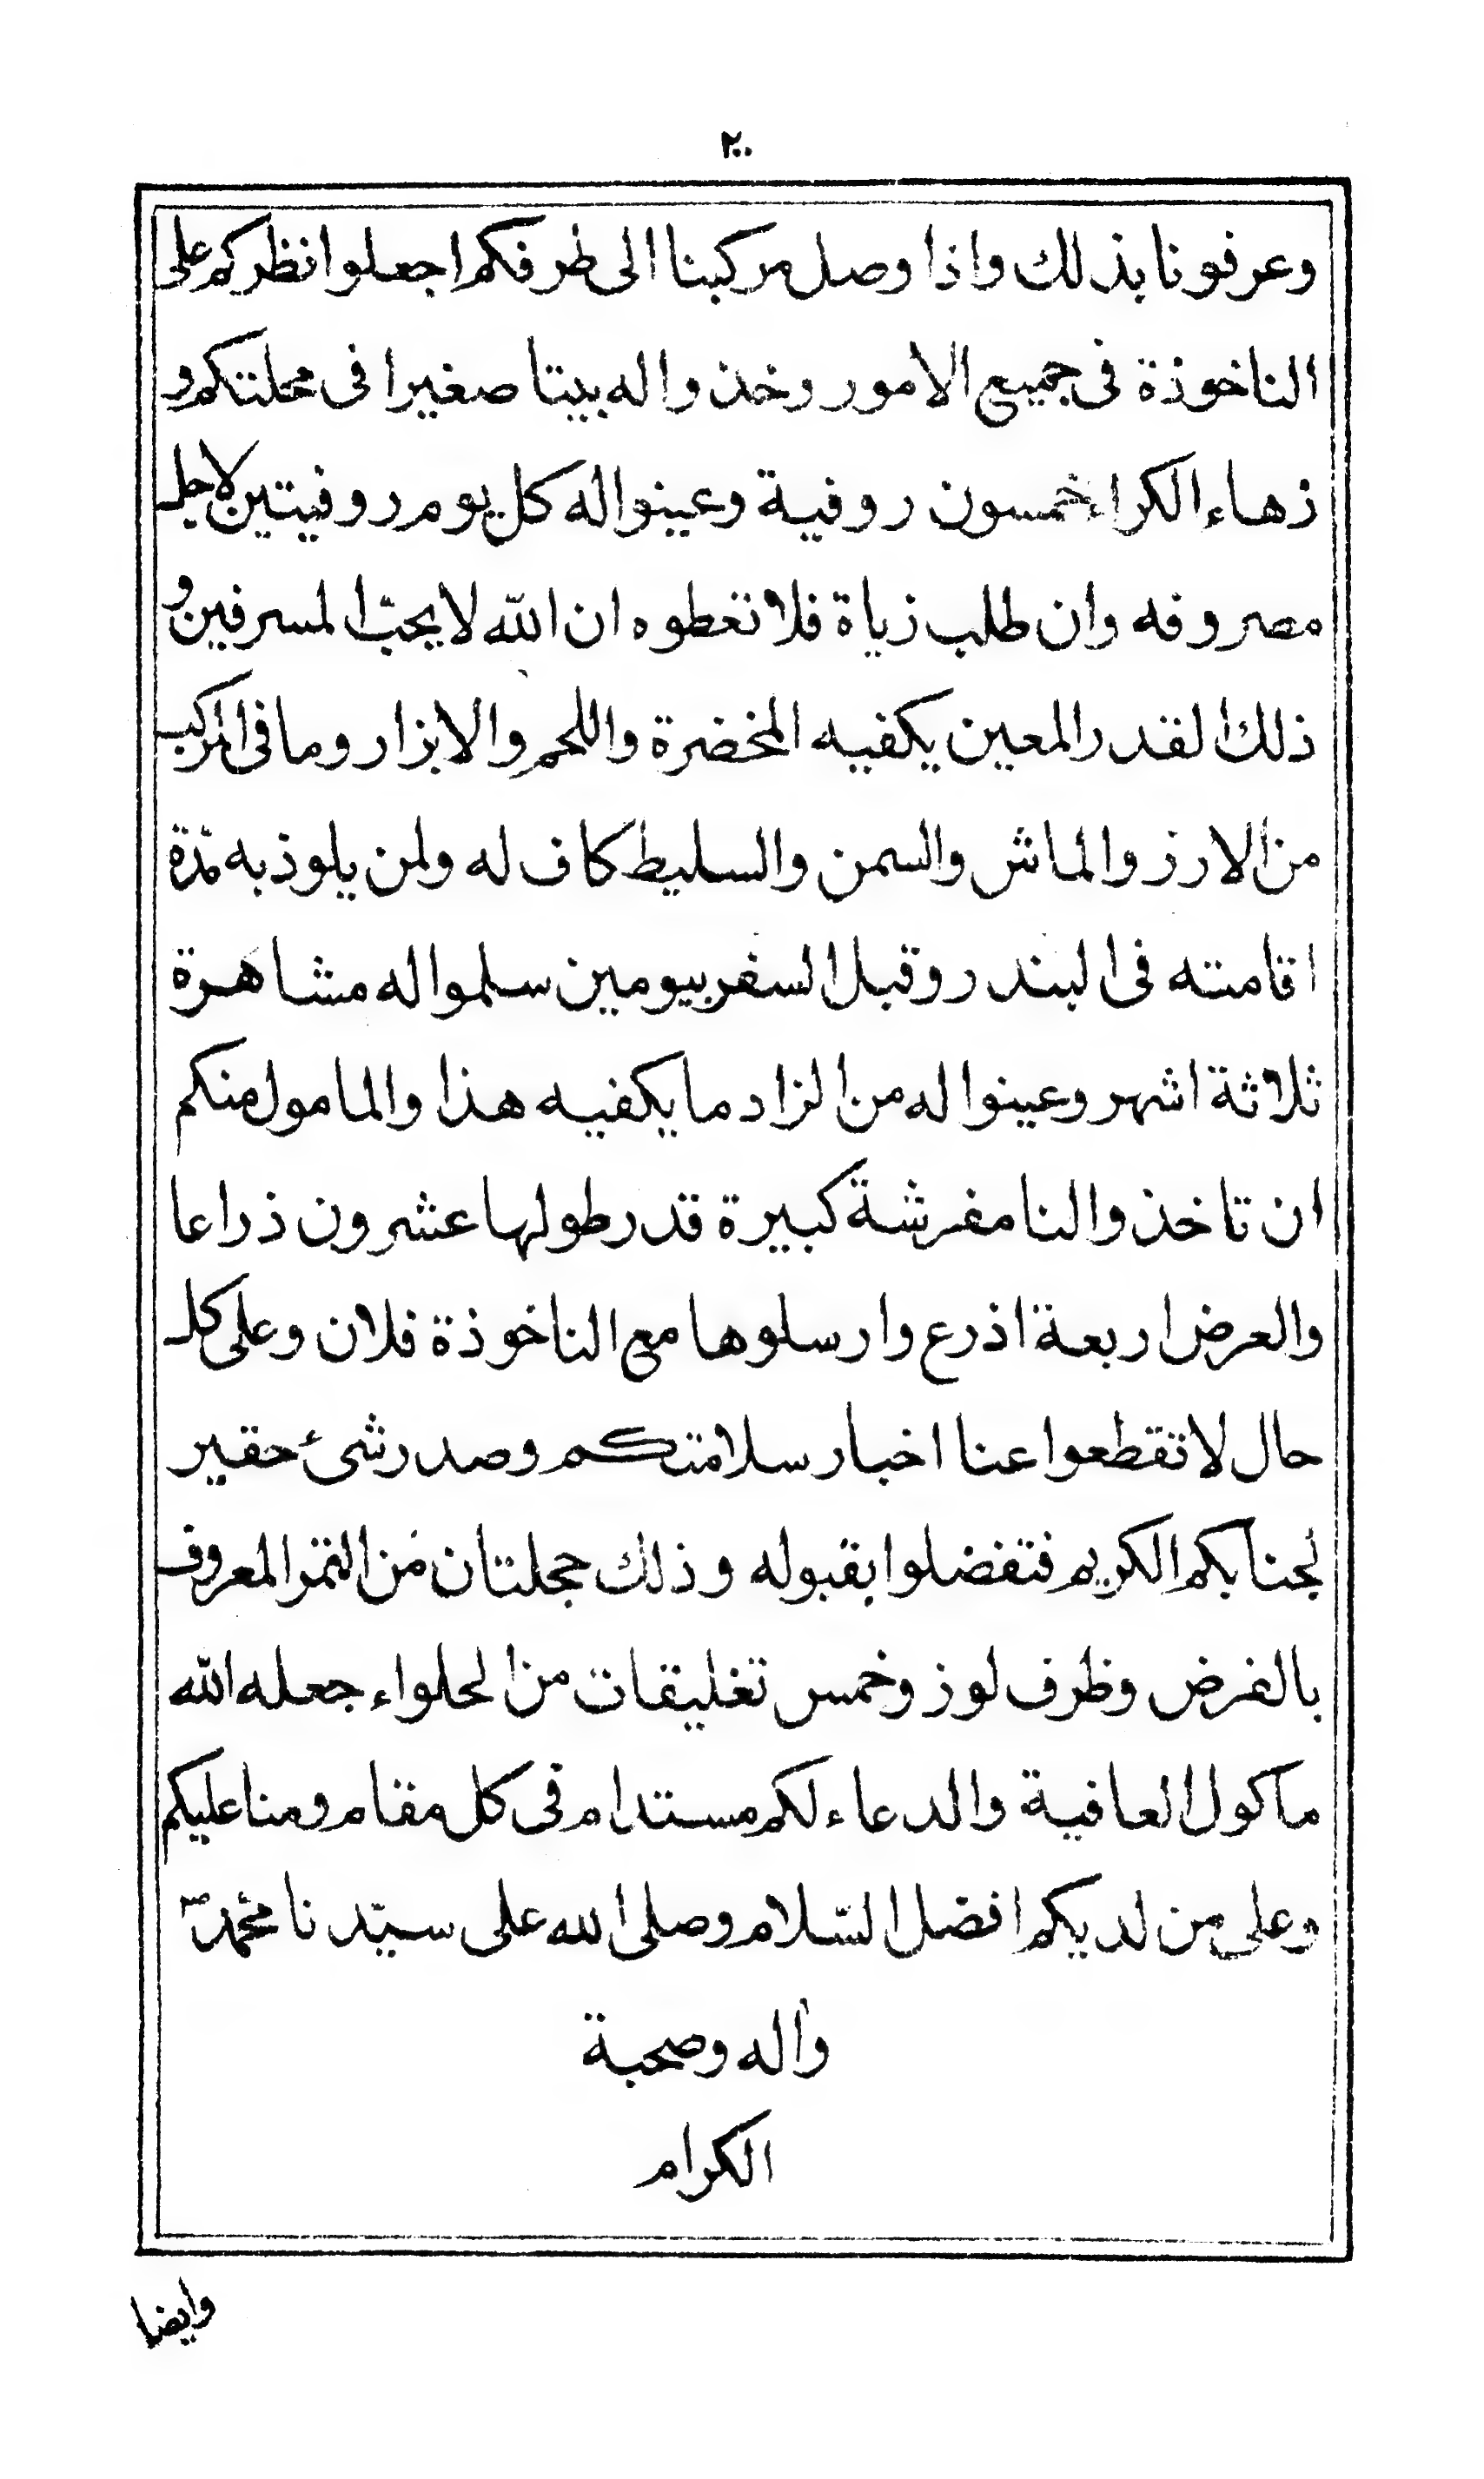 ٢٠٠
وعرفونا بذلك واذا وصل مركبنا الى طرفكم اجعلوا نظركم على
الناخوذة فى جميع الامور وخذوا له بيتا صغيرا فى محلتكم و
زهاء الكراء خمسون روفية وعينوا له كل يوم روفيتين لاجل
مصروفه وان طلب زياة فلا تعطوه ان الله لا يحبّ المسرفين و
ذلك القدر المعين يكفيه المخضرة واللحم والابزار وما فى المركب
من الارز والماش والسمن والسليط كاف له ولمن يلوذ به مدّة
اقامته فى البندر وقبل السفر بيومين سلموا له مشاهرة
ثلاثة اشهر وعينوا له من الزاد ما يكفيه هذا والمامول منكم
ان تاخذوا لنا مفرشة كبيرة قدر طولها عشرون ذراعا
والعرض اربعة اذرع وارسلوها مع الناخوذة فلان وعلى كل
حال لا تقطعوا عنا اخبار سلامتكم وصدر شئ حقير
لجنابكم الكريم فتفضلوا بقبوله وذلك جحلتان من التمر المعروف
بالفرض وظرف لوز وخمس تغليقات من الحلواء جعله الله
ماكول العافية والدعاء لكم مستدام فى كل مقام ومنا عليكم
وعلى من لديكم افضل السّلام وصلى الله على سيّدنا محمّد
واله وصحبة
الكرام
وايضا